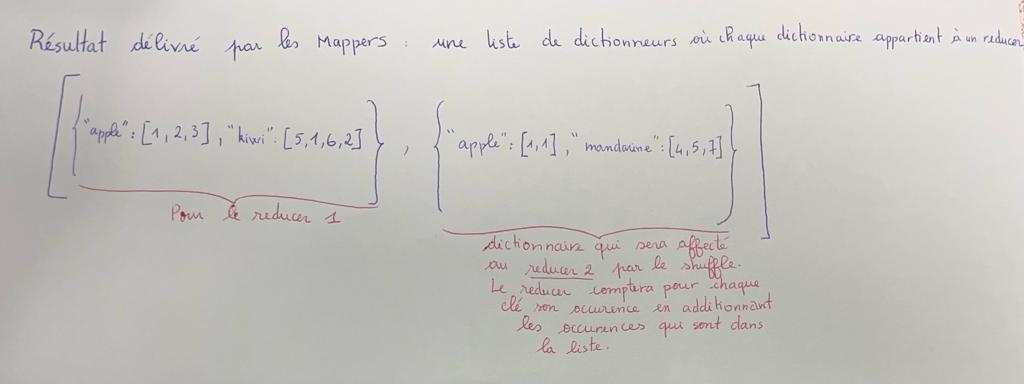 Résultat délivré par les Mappers : une liste de dictionneurs où chaque dictionnaire appartient à un reducer
[{"apple": [1, 2, 3], "kiwi": [5,1,6,2]}, {"apple": [1,1], "mandarine": [4,5,7]}]
Pour le reducer 1
dictionnaire qui sera affecté
au reducer 2 par le shuffle.
Le reducer comptera pour chaque
clé son occurence en additionnant
les occurences qui sont dans
la liste.